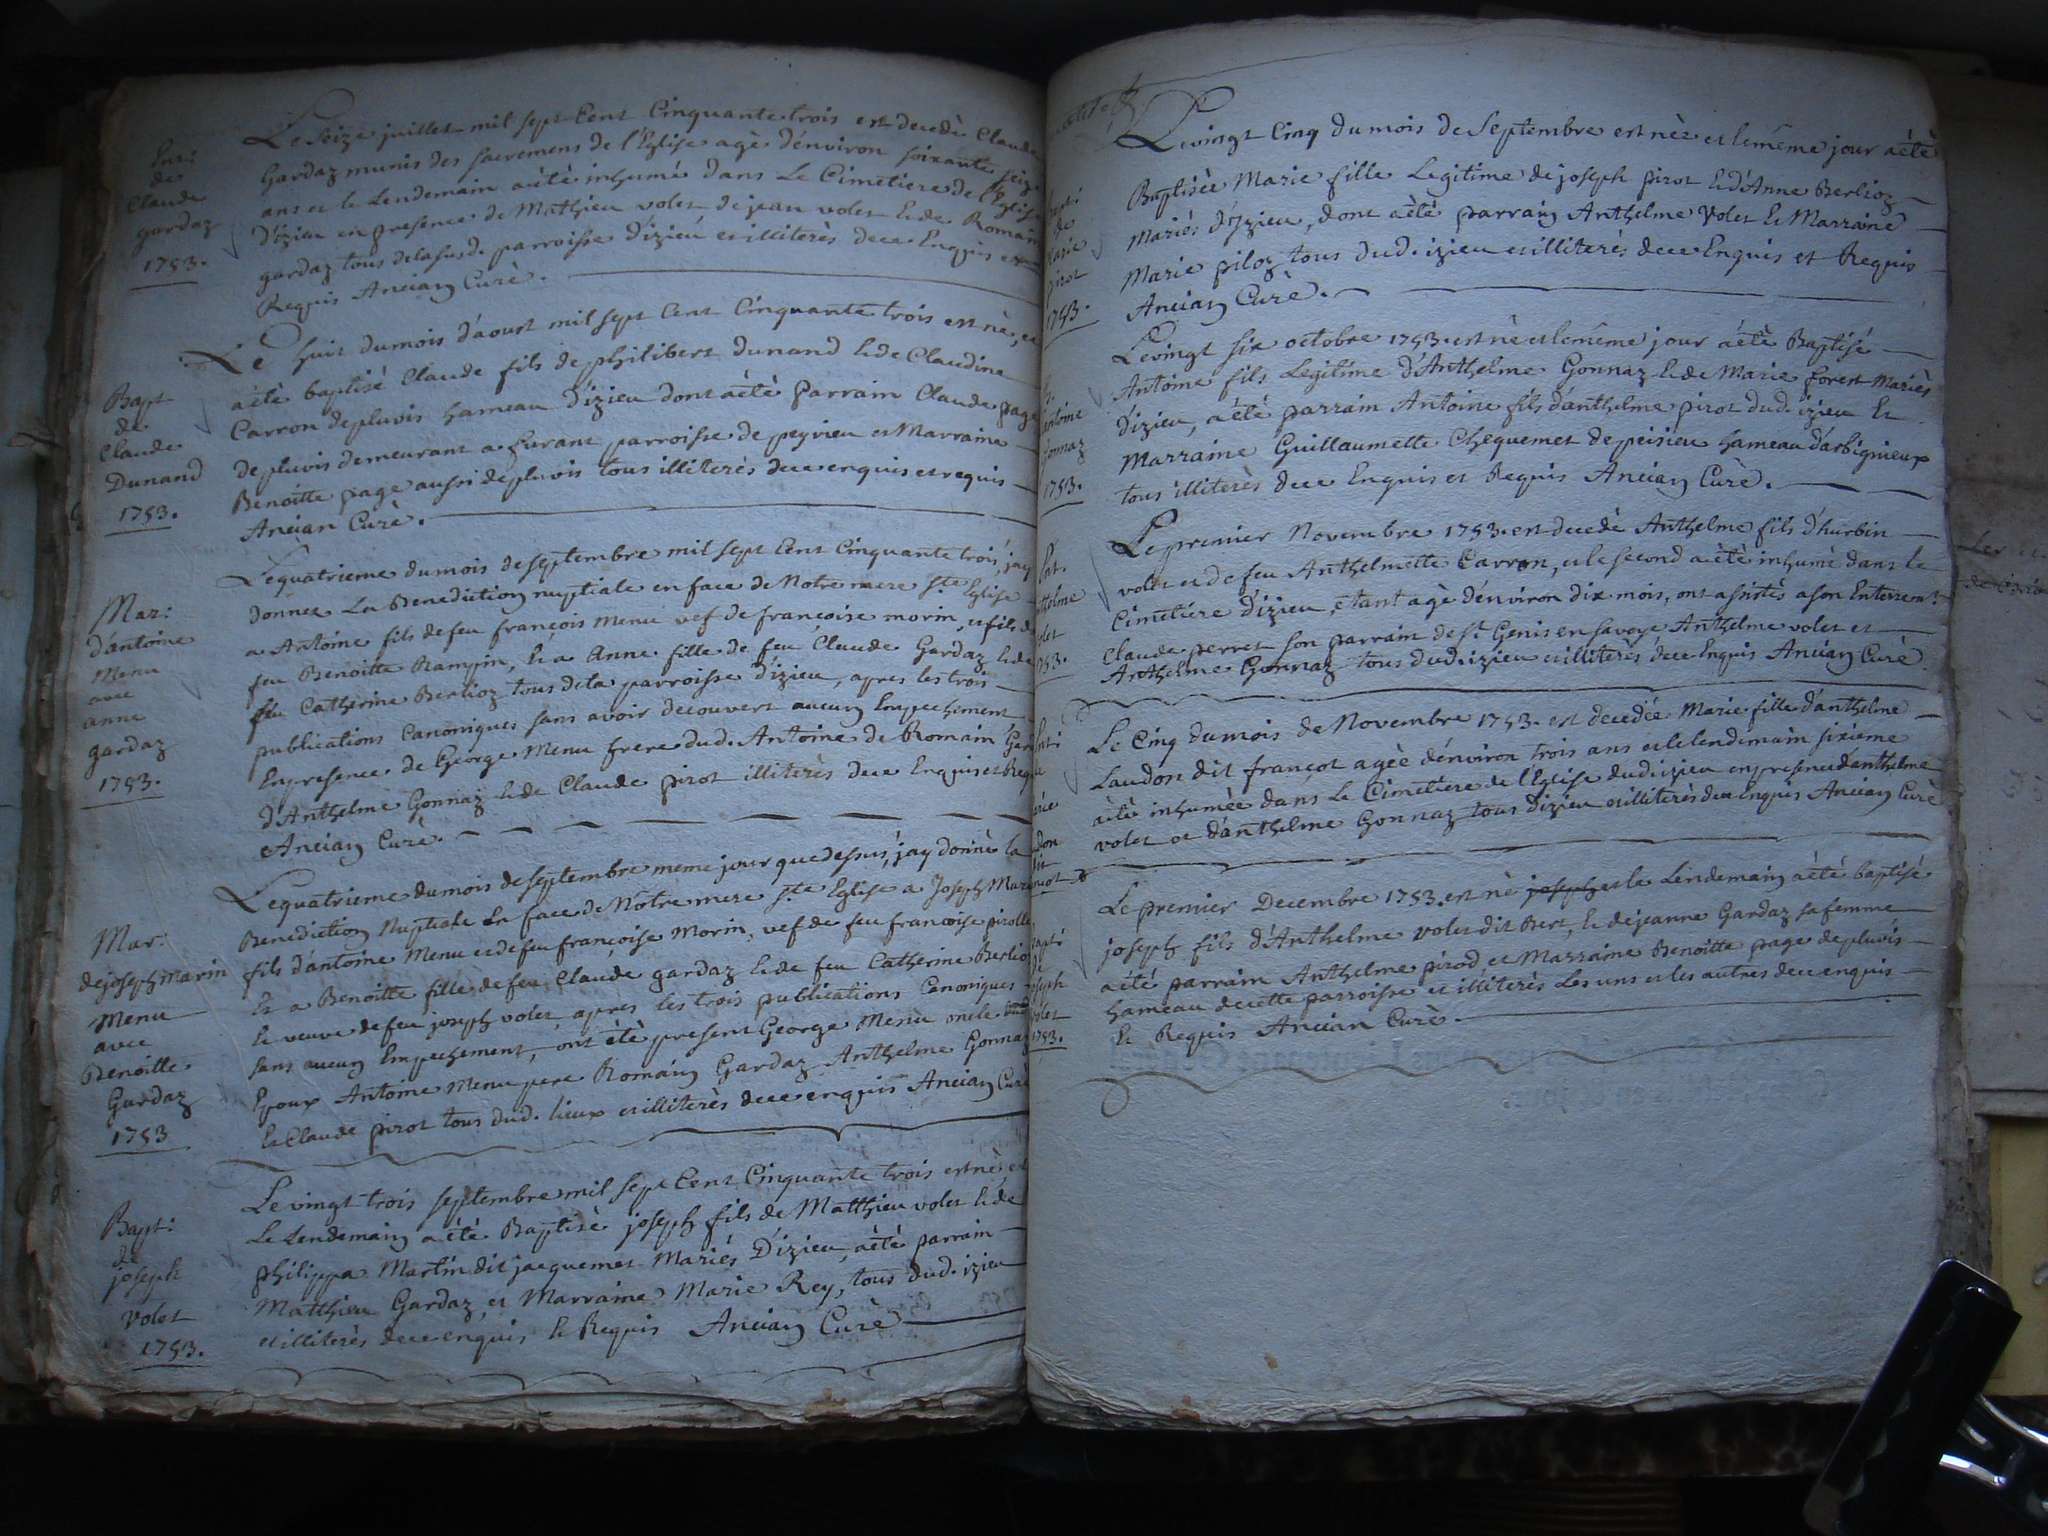 Ent:
de
Claude
gardaz
1753.
Le Seize juillet mil sept Cent Cinquante trois est decedè Claude
Gardaz munis des sacremens de l'Eglise agè d'énviron soixante seize
ans et le Lendemain aétè inhumé dans Le Cimetiere de l'Eglise
D'izieu en presence de Mathieu volet de jean volet & de Romain
gardaz tous delasusd. parroisse d'izieu et illiterès dece Enquis et
Requis Ancian Curè.
Bapt
de
Claude
Dunand
1753.
Le huit dumois d'aoust mil sept Cent Cinquante trois est nè, et
aétè baptisè Claude fils de philibert Dunand & de Claudine
Carron depluvis hameau D'izieu dont aétè parrain Claude page
de pluvis demeurant a parroisse de peyrieu et Marraine
Benoitte page aussi depluvis tous illiterès dece enquis et requis
Ancian Curè.
Mar:
d'antoine
Menu
avec
anne
gardaz
1753.
Le quatrieme dumois deseptembre mil sept Cent Cinquante trois, jay
donneè La Benediction nuptiale en face de Notre mere Ste Eglise
a Antoine fils defeu françois Menu vef de françoise morin, et fils de
feu Benoitte Ranyin, & a Anne fille de feu Claude Gardaz & de
feu Catherine Berlioz tous dela parroisse D'izieu, apres les trois
publications Canoniques sans avoir decouvert aucun Empechement
En presence de George Menu frere dud. Antoine de Romain Gardaz
d'Anthelme Gonnaz & de Claude pirot illiterès dece Enquis et Requis
Ancian Curè.
Mar:
de joseph marin
Menu
avec
Benoitte
Gardaz
1753
Le quatrieme dumois deseptembre meme jour que dessus, jay donnè la
Benediction Nuptiale En face de Notre mere Ste Eglise a Joseph Marin
fils d'antoine Menu et defeu françoise Morin, vef de feu françoise pirolle
& a Benoitte fille de feu Claude gardaz & de feu Catherine Berlioz
& veuve defeu joseph volet, apres les trois publications Canoniques
sans aucun Empechement, ont étè present George Menu oncle
Epoux Antoine Menu pere Romain Gardaz Anthelme Gonnaz
& Claude pirot tous dud. lieux et illiterès dece enquis Ancian Curè
Bapt:
de
joseph
volet
1753.
Le vingt trois septembre mil sept Cent Cinquante trois est nè, et
Le Lendemain aétè Baptisè joseph fils de Matthieu volet & de
philippa Martin dit jacquemet Mariès D'izieu, aétè parrain
Matthieu Gardaz et Marraine Marie Rey, tous dud. izieu
et illiterès dece enquis & Requis Ancian Curè
de
Marie
pirot
1753.
Le vingt Cinq dumois de Septembre est nèe et lemême jour aétè
Baptisèe Marie fille Legitime de joseph pirot & d'Anne Berlioz
Mariès d'Izieu, dont aétè parrain Anthelme Volet & Marraine
Marie piloz tous dud. izieu et illiterès dece Enquis et Requis
Ancian Curè.
antoine
Gonnaz
1753.
Levingt six octobre 1753. est nè et lemême jour aétè Baptisé
Antoine fils Legitime d'Anthelme Gonnaz & de Marie forest Mariès
D'izieu, aétè parrain Antoine fils d'anthelme pirot dud. izieu &
Marraine Guillaumette Chequemet de peisieu hameau d'arbignieux
tous illiterès dece Enquis et Requis Ancian Curè.
Ent.
anthelme
volet
1753.
Le premier Novembre 1753. est decedè Anthelme fils d'hurbin
volet et de feu Anthelmette Carron, et le second aétè inhumè dans le
Cimetiere d'izieu, etant agè d'énviron dix mois, ont assistès a son Enterremt
Claude perret son parrain de st Genis en Savoye Anthelme volet et
Anthelme Gonnaz tous dud. izieu et illiterès dece Enquis Ancian Curè.
Le Cinq dumois de Novembre 1753. est decedée Marie fille d'anthelme
Laudon dit françot agèe d'énviron trois ans et le lendemain sixieme
aétè inhumèe dans Le Cimetiere de l'Eglise dud. izieu en presence d'anthelme
volet et d'anthelme Gonnaz tous D'izieu et illiterès dece Enquis Ancian Curè
Bapt:
de
joseph
volet
1753.
Le premier Decembre 1753. est nè joseph et le Lendemain aétè baptisé
joseph fils d'Anthelme volet dit Bert, & de jeanne Gardaz sa femme
aétè parrain Anthelme pirod et Marraine Benoitte page de pluvis
hameau decette parroisse et illiterès Les uns et les autres dece enquis
& Requis Ancian Curè.